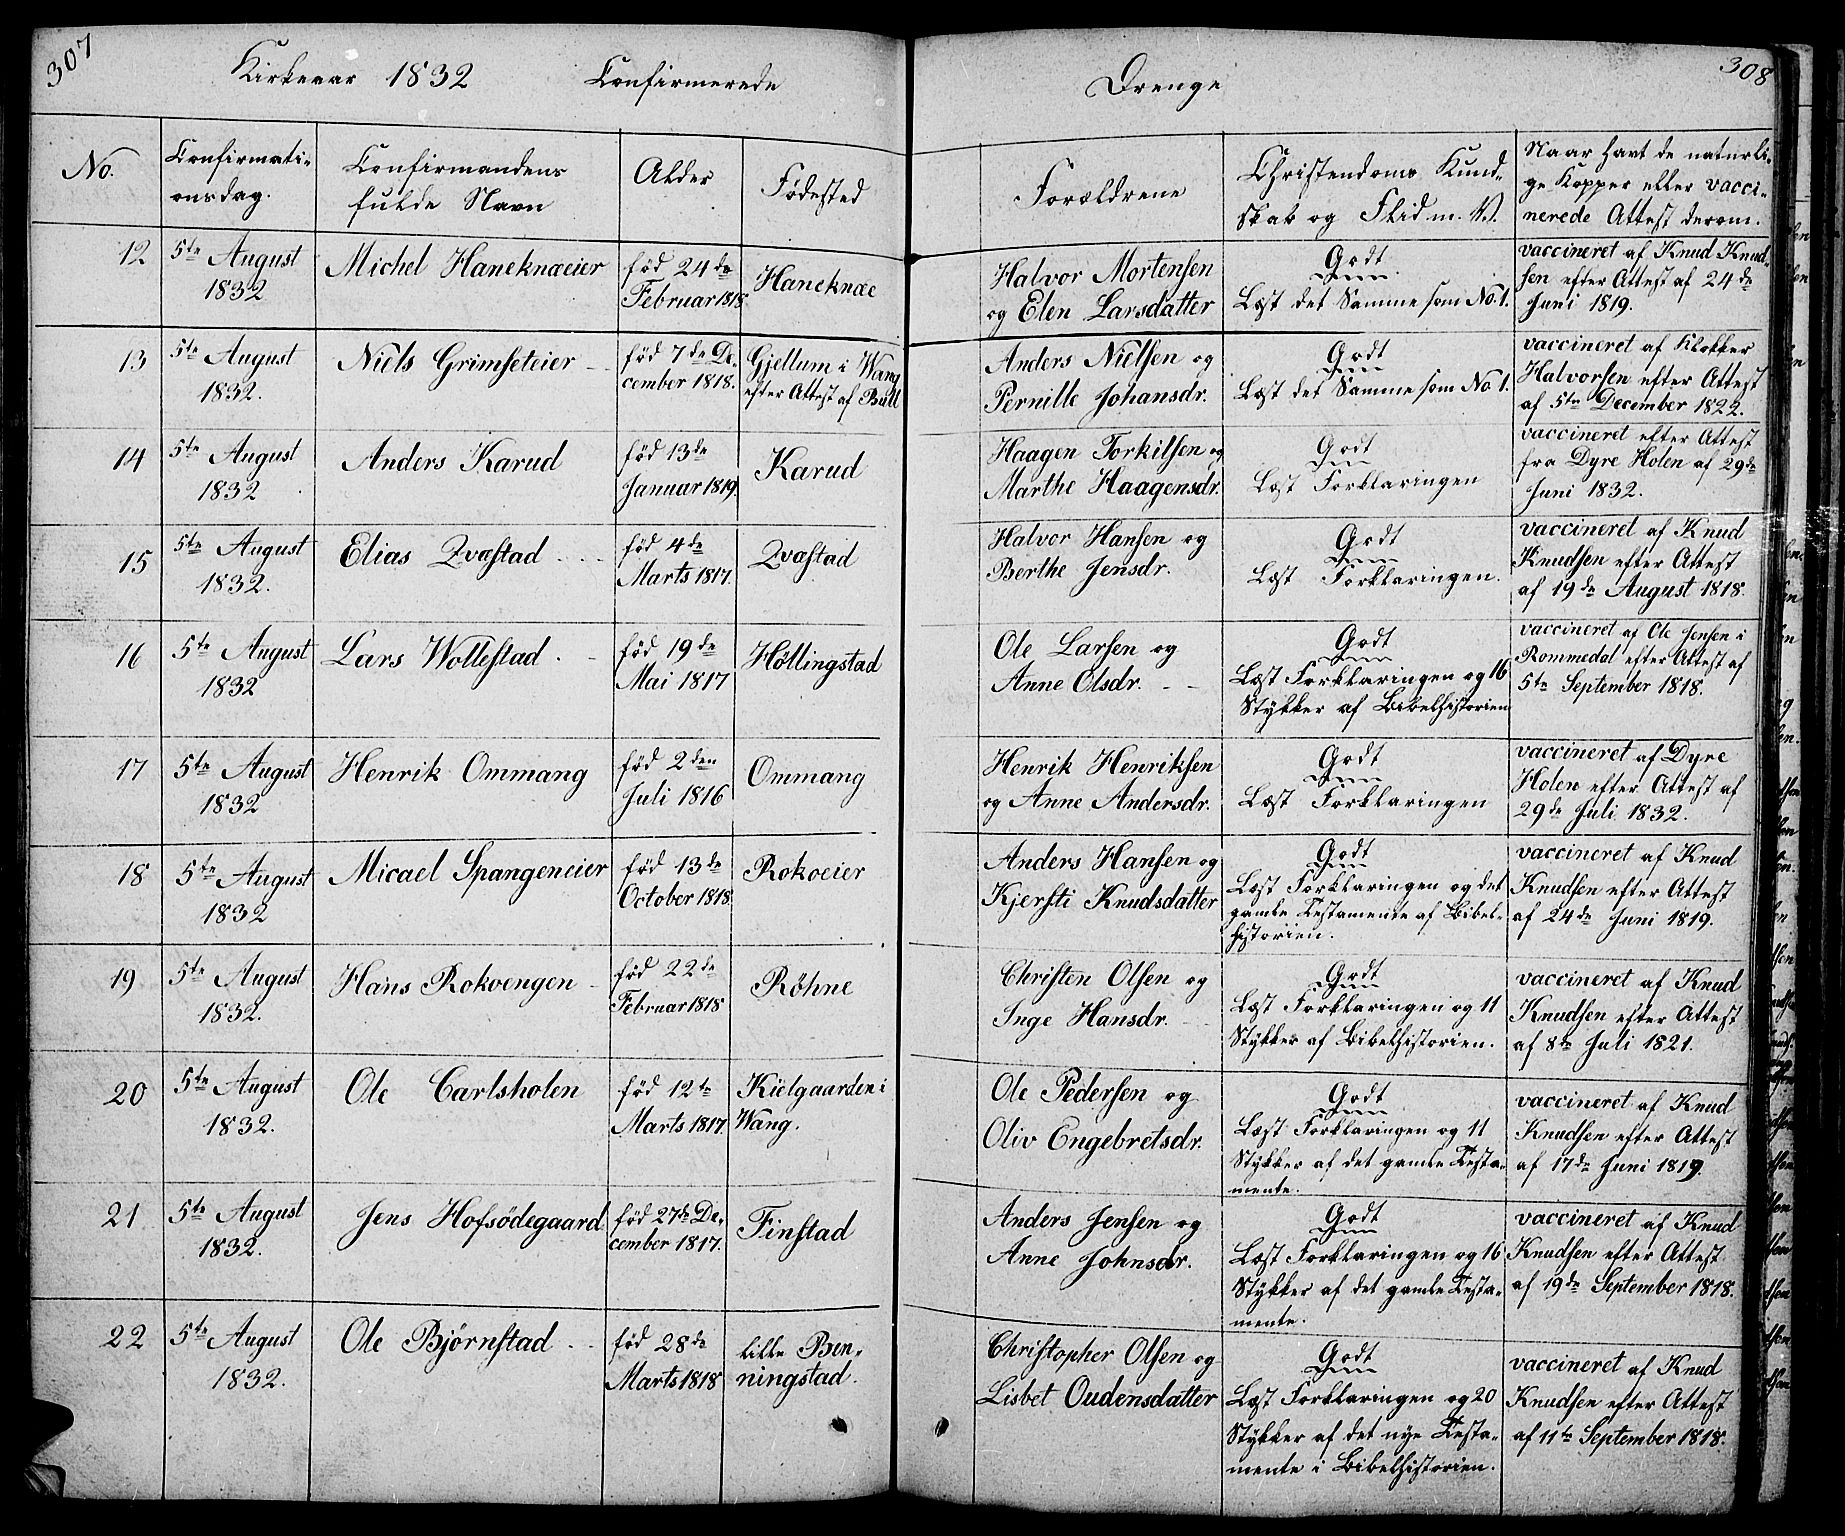 307
Kirkeaar 1832 Confirmerede Drenge
308
No.
Confirmati-
onsdag.
Confirmandens
fulde Navn
Alder
Fødested
Forældrene
Christendoms Kund-
skab og Flid m. V.
Naar havt de naturli-
ge Kopper eller vacci-
nerede Attest derom.
12
5te August
1832
Michel Haneknæeier
fød 24de
Februar 1818
Haneknæe
Halvor Mortensen
og Elen Larsdatter
Godt
Læst det Samme som No. 1.
vaccineret af Knud Knud-
sen efter Attest af 24de
Juni 1819.
13
5te August
1832.
Niels Grimseteier
fød 7de De-
cember 1818.
Gjellum i Wang
efter Attest af Bull
Anders Nielsen og
Pernille Johansdr.
Godt
Læst det Samme som No 1.
vaccineret af Klokker
Halvorsen efter Attest
af 5te December 1822.
14
5te August
1832
Anders Karud
fød 13de
Januar 1819.
Karud
Haagen Torkilsen og
Marthe Haagensdr.
Godt
Læst Forklaringen
vaccineret efter Attest
fra Dyre Holen af 29de
Juni 1832.
15
5te August
1832.
Elias Qvæstad
fød 4de
Marts 1817.
Qvæstad
Halvor Hansen og
Berthe Jensdr.
Godt
Læst Forklaringen.
vaccineret af Knud
Knudsen efter Attest
af 19de August 1818.
16
5te August
1832
Lars Wollestad
fød 19de
Mai 1817
Høllingstad
Ole Larsen og
Anne Olsdr.
Godt
Læst Forklaringen og 16
Stykker af Bibelhistorien
vaccineret af Ole Jensen i
Rommedal efter Attest af
5te September 1818.
17
5te August
1832
Henrik Ommang
fød 2den
Juli 1816
Ommang
Henrik Henriksen
og Anne Andersdr.
Godt
Læst Forklaringen
vaccineret af Dyre
Holen efter Attest af
29de Juli 1832.
18
5te August
1832
Micael Spangeneier
fød 13de
October 1818.
Rokoeier
Anders Hansen og
Kjersti Knudsdatter
Godt
Læst Forklaringen og det
gamle Testamente af Bibel-
historien.
vaccineret af Knud
Knudsen efter Attest
af 24de Juni 1819.
19
5te August
1832.
Hans Rokoengen
fød 22de
Februar 1818
Røhne
Christen Olsen og
Inge Hansdr.
Godt
Læst Forklaringen og 11
Stykker af Bibelhistorien.
vaccineret af Knud
Knudsen efter Attest
af 8de Juli 1821.
20
5te August
1832.
Ole Carlsholen
fød 12te
Marts 1817.
Kielgaarden i
Wang.
Ole Pedersen og
Oliv Engebretsdr.
Godt
Læst Forklaringen og 11
Stykker af det gamle Testa-
mente.
vaccineret af Knud
Knudsen efter Attest
af 17de Juni 1819.
21
5te August
1832.
Jens Hofsødegaard
fød 27de De-
cember 1817.
Finstad
Anders Jensen og
Anne Johnsdr.
Godt
Læst Forklaringen og 16
Stykker af det gamle Testa-
mente.
vaccineret af Knud
Knudsen efter Attest
af 19de September 1818.
22
5te August
1832.
Ole Bjørnstad
fød 28de
Marts 1818
lille Ben-
ningstad.
Christopher Olsen og
Lisbet Oudensdatter
Godt
Læst Forklaringen og 20
Stykker af det nye Testa-
mente i Bibelhistorien.
vaccineret af Knud
Knudsen efter Attest
af 11te September 1818.